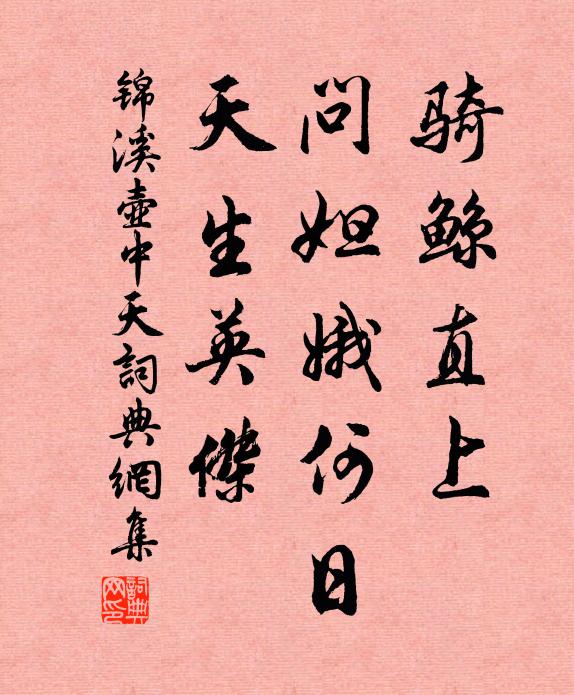 骑鲸直上
问妲娥何日
天生英傑
锦溪壶中天詞典網集
詞典
网印